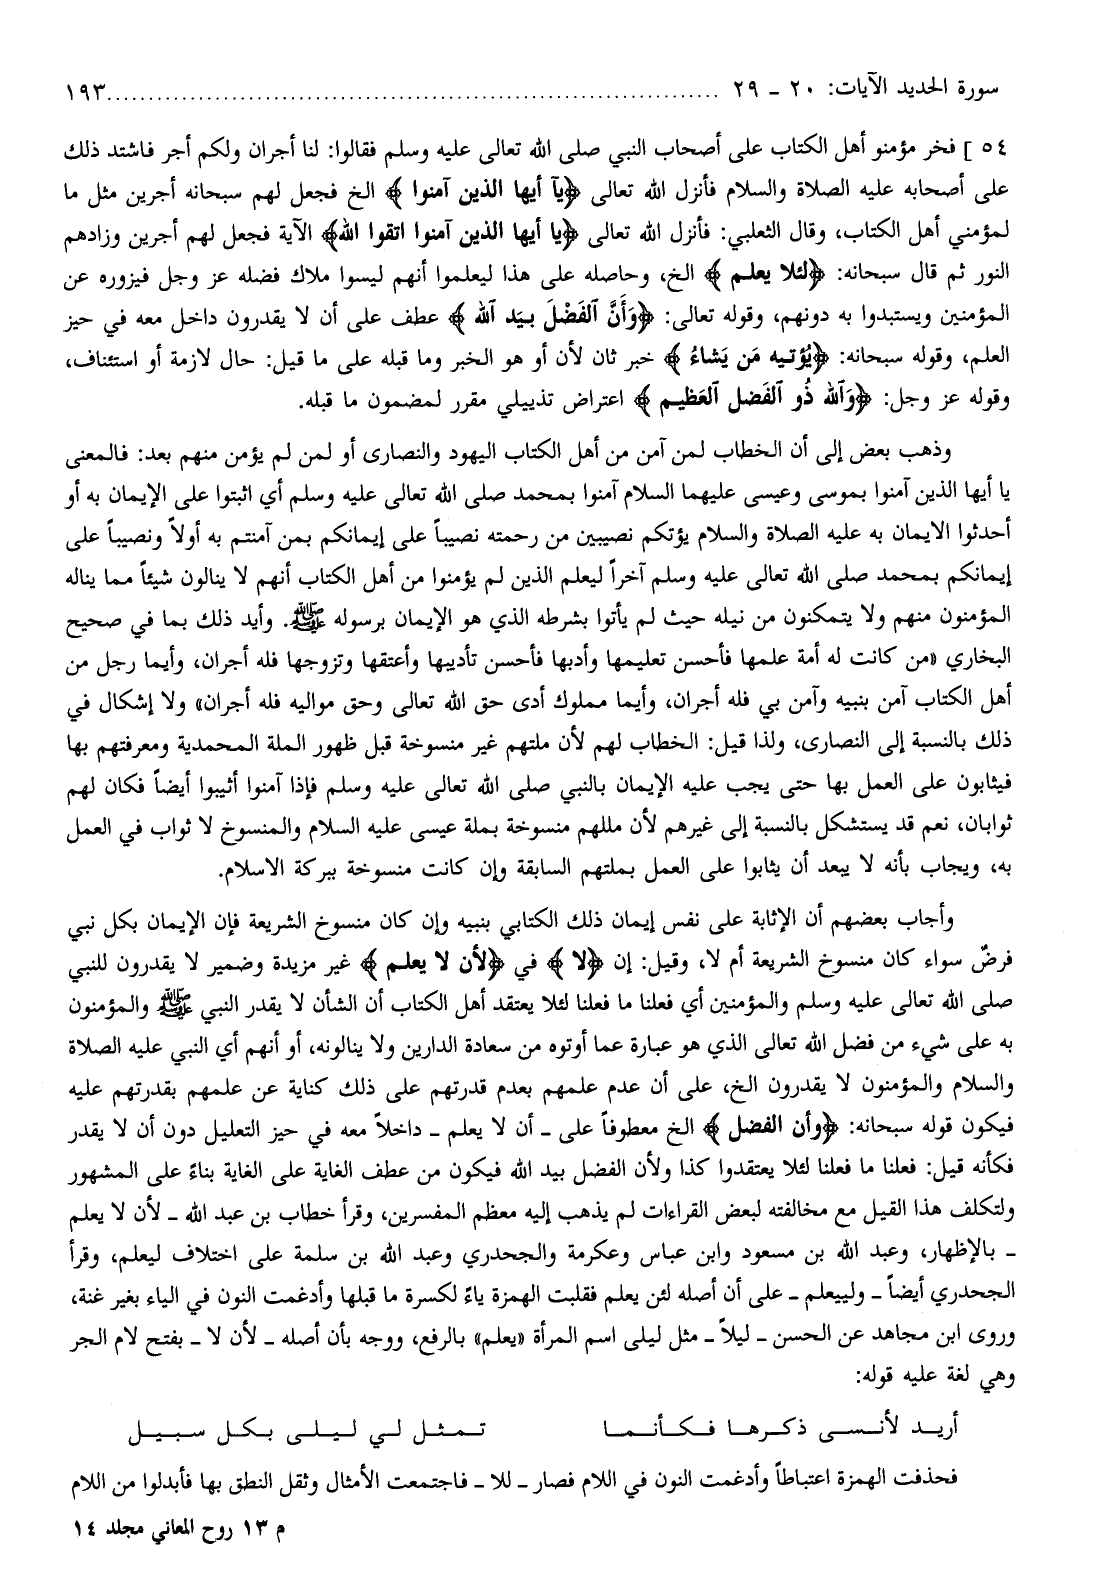 سورة الحديد الآيات: ٢٠ ـ ٢٩ .......................................................................... ١٩٣
٥٤ ] فخر مؤمنو أهل الكتاب على أصحاب النبي صلى الله تعالى عليه وسلم فقالوا: لنا أجران ولكم أجر فاشتد ذلك
على أصحابه عليه الصلاة والسلام فأنزل الله تعالى ﴿يآ أيها الذين آمنوا ﴾ الخ فجعل لهم سبحانه أجرين مثل ما
لمؤمني أهل الكتاب، وقال الثعلبي: فأنزل الله تعالى ﴿يا أيها الذين آمنوا اتقوا الله﴾ الآية فجعل لهم أجرين وزادهم
النور ثم قال سبحانه: ﴿لئلا يعلم ﴾ الخ، وحاصله على هذا ليعلموا أنهم ليسوا ملاك فضله عز وجل فيزوره عن
المؤمنين ويستبدوا به دونهم، وقوله تعالى: ﴿وَأَنَّ ٱلفَضْلَ بِيَد ٱلله ﴾ عطف على أن لا يقدرون داخل معه في حيز
العلم، وقوله سبحانه: ﴿يُؤتيه مَن يَشاءُ ﴾ خبر ثان لأن أو هو الخبر وما قبله على ما قيل: حال لازمة أو استئناف،
وقوله عز وجل: ﴿وَٱلله ذُو ٱلفَضل ٱلعَظيم ﴾ اعتراض تذييلي مقرر لمضمون ما قبله.
وذهب بعض إلى أن الخطاب لمن آمن من أهل الكتاب اليهود والنصارى أو لمن لم يؤمن منهم بعد: فالمعنى
يا أيها الذين آمنوا بموسى وعيسى عليهما السلام آمنوا بمحمد صلى الله تعالى عليه وسلم أي اثبتوا على الإيمان به أو
أحدثوا الايمان به عليه الصلاة والسلام يؤتكم نصيبين من رحمته نصيباً على إيمانكم بمن آمنتم به أولاً ونصيباً على
إيمانكم بمحمد صلى الله تعالى عليه وسلم آخراً ليعلم الذين لم يؤمنوا من أهل الكتاب أنهم لا ينالون شيئاً مما يناله
المؤمنون منهم ولا يتمكنون من نيله حيث لم يأتوا بشرطه الذي هو الإيمان برسوله ﷺ. وأيد ذلك بما في صحيح
البخاري «من كانت له أمة علمها فأحسن تعليمها وأدبها فأحسن تأديبها وأعتقها وتزوجها فله أجران، وأيما رجل من
أهل الكتاب آمن بنبيه وآمن بي فله أجران، وأيما مملوك أدى حق الله تعالى وحق مواليه فله أجران» ولا إشكال في
ذلك بالنسبة إلى النصارى، ولذا قيل: الخطاب لهم لأن ملتهم غير منسوخة قبل ظهور الملة المحمدية ومعرفتهم بها
فيثابون على العمل بها حتى يجب عليه الإيمان بالنبي صلى الله تعالى عليه وسلم فإذا آمنوا أثيبوا أيضاً فكان لهم
ثوابان، نعم قد يستشكل بالنسبة إلى غيرهم لأن مللهم منسوخة بملة عيسى عليه السلام والمنسوخ لا ثواب في العمل
به، ويجاب بأنه لا يبعد أن يثابوا على العمل بملتهم السابقة وإن كانت منسوخة ببركة الاسلام.
وأجاب بعضهم أن الإثابة على نفس إيمان ذلك الكتابي بنبيه وإن كان منسوخ الشريعة فإن الإيمان بكل نبي
فرضٌ سواء كان منسوخ الشريعة أم لا، وقيل: إن ﴿لا ﴾ في ﴿لأن لا يعلم ﴾ غير مزيدة وضمير لا يقدرون للنبي
صلى الله تعالى عليه وسلم والمؤمنين أي فعلنا ما فعلنا لئلا يعتقد أهل الكتاب أن الشأن لا يقدر النبي ﷺ والمؤمنون
به على شيء من فضل الله تعالى الذي هو عبارة عما أوتوه من سعادة الدارين ولا ينالونه، أو أنهم أي النبي عليه الصلاة
والسلام والمؤمنون لا يقدرون الخ، على أن عدم علمهم بعدم قدرتهم على ذلك كناية عن علمهم بقدرتهم عليه
فيكون قوله سبحانه: ﴿وأن الفضل ﴾ الخ معطوفاً على ـ أن لا يعلم ـ داخلاً معه في حيز التعليل دون أن لا يقدر
فكأنه قيل: فعلنا ما فعلنا لئلا يعتقدوا كذا ولأن الفضل بيد الله فيكون من عطف الغاية على الغاية بناءً على المشهور
ولتكلف هذا القيل مع مخالفته لبعض القراءات لم يذهب إليه معظم المفسرين، وقرأ خطاب بن عبد الله ـ لأن لا يعلم
ـ بالإظهار، وعبد الله بن مسعود وابن عباس وعكرمة والجحدري وعبد الله بن سلمة على اختلاف ليعلم، وقرأ
الجحدري أيضاً ـ ولييعلم ـ على أن أصله لئن يعلم فقلبت الهمزة ياءً لكسرة ما قبلها وأدغمت النون في الياء بغير غنة،
وروى ابن مجاهد عن الحسن ـ ليلاً ـ مثل ليلى اسم المرأة «يعلم» بالرفع، ووجه بأن أصله ـ لأن لا ـ بفتح لام الجر
وهي لغة عليه قوله:
أريد لأنسى ذكرها فكأنما تمثل لي ليلى بكل سبيل
فحذفت الهمزة اعتباطاً وأدغمت النون في اللام فصار ـ للا ـ فاجتمعت الأمثال وثقل النطق بها فأبدلوا من اللام
م ١٣ روح المعاني مجلد ١٤